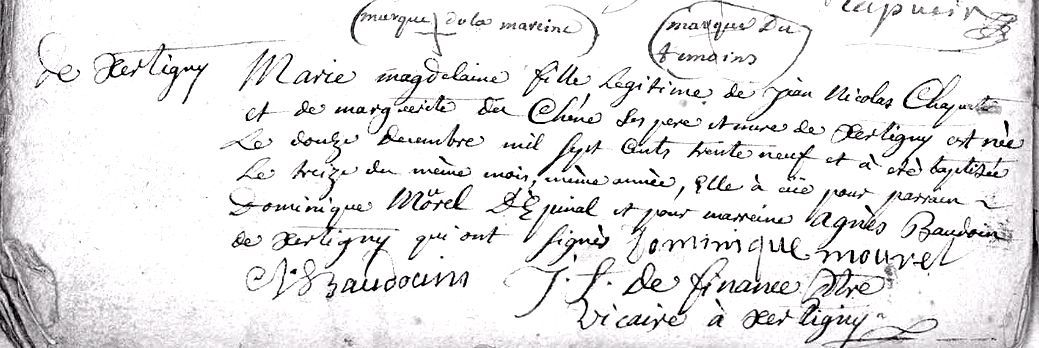 marque de la mareine
marque Du
temoins
de Xertigny
Marie magdelaine fille Legitime de jean Nicolas
et de marguerite du Chêne Ses pere et mere de Xertigny est née
Le douze decembre mil sept cents trente neuf et à eté baptisée
Le treize du même mois, même année, Elle à eüe pour parrain
Dominique Morel D'Epinal et pour marreine Agnès Baudoin
de Xertigny qui ont signés Dominique mourel
A: Baudocuin J. f. de finance Ptre
vicaire à Xertigny